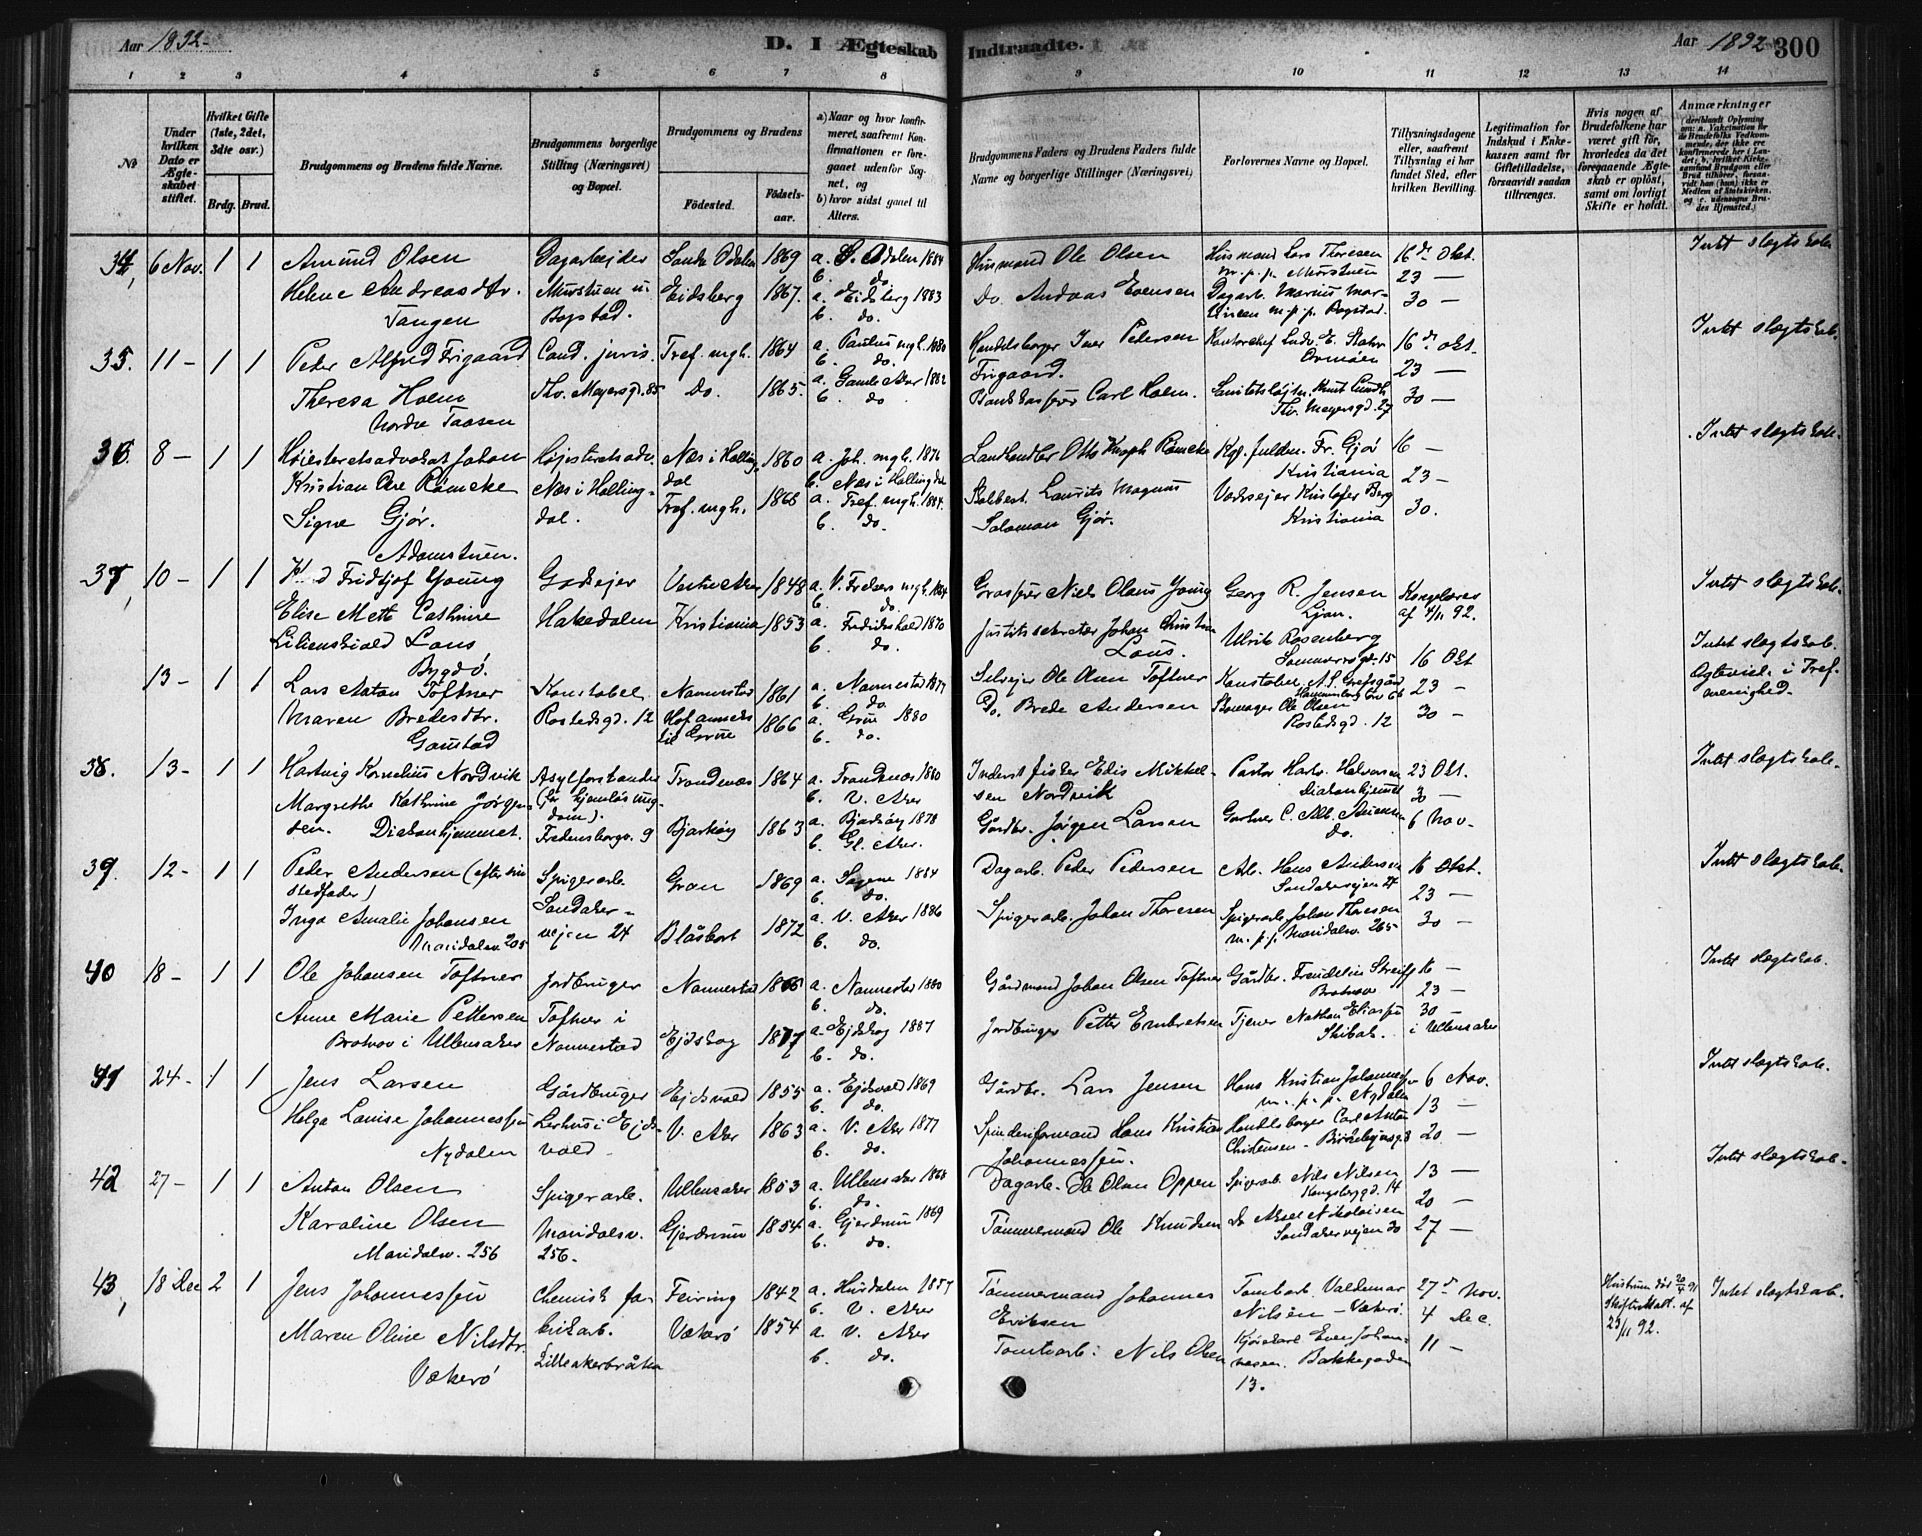 Aar 1892.
D. I Ægteskab
Indtraadte.
Aar 1892
300
1 2 3 4 5 6 7 8 9 10 11 12 13 14
No
Under hvilken Dato er Ægteskabet stiftet.
Hvilket Gifte (1ste, 2det, 3die osv.)
Brdg. Brud.
Brudgommens og Brudens fulde Navne.
Brudgommens borgerlige Stilling (Næringsvei) og Bopæl.
Brudgommens og Brudens
Födested.
Födselsaar.
a) Naar og hvor konfirmeret, saafremt Konfirmationen er foregaaet udenfor Sognet, og
b) hvor sidst gaaet til Alters.
Brudgommens Faders og Brudens Faders fulde Navne og borgerlige Stillinger (Næringsvei)
Forlovernes Navne og Bopæl.
Tillysningsdagene eller, saafremt Tillysning ei har fundet Sted, efter hvilken Bevilling.
Legitimation for Indskud i Enkekassen samt for Giftetilladelse, forsaavidt saadan tiltrænges.
Hvis nogen af Brudefolkene har været gift för, hvorledes da det foregaaende Ægteskab er oplöst, samt om lovligt Skifte er holdt.
Anmærkninger
34, 6 Nov. 1 1 Amund Olsen Dagarbejder Söndre Odalen 1869 a. S. Odalen 1884 Husmand Ole Olsen Husmand Lars Thoresen 16de Okt. Intet slægtskab
b. do. m.p.p. Murstuen 23 —
Helene Andreasdtr. Murstuen u. Eidsberg 1867. a. Eidsberg 1883 Do. Andreas Evensen Dagarb. Marius Mar- 30 —
Tangen Bogstad. b. do. tinsen m.p.p. Bogstad.
35. 11 — 1 1 Peder Alfred Frigaard Cand. juris. Tref. mgh. 1864 a. Paulus mgh. 1880 Handelsborger Iver Petersen Kontorchef Ludv. E. 16de Okt. Intet slægtskab.
b. do. Frigaard. Ormöen 23 —
Theresa Holm Thv. Meyersg. 85 Do. 1865. a. Gamle Aker 1882 Bankkasserer Carl Holm. 30 —
Nordre Taasen b. do Thv. Meyersgd. 27
36. 8 — 1 1 Höiesteretsadvokat Johan Höjesteretsadv. Næs i Halling- 1860 a. Joh. mgh. 1876 Landhandler Otto Römcke Kgl. fuldm. Fr. Gjör 16 — Intet slægtskab.
Kristian Römcke Næs i Halling- dal b. Næs i Hallingdal Kristiania 23 —
Signe Gjör. dal. Tref. mgh. 1866 a. Tref. mgh. 1884. Laurits Magnus Kristofer Berg 30.
Adamstuen. b. do. Salomon Gjör. Kristiania
37, 10 — 1 1 Fridtjof Young Godsejer Vestre Aker 1848 a. V. mgh. 1864 Grosserer Niels Olaus Young Georg R. Jensen Kongebrev Intet slægtskab.
b. do. Ljan. af 4/11 92.
Elise Mette Cathrine Hakedalen Kristiania 1853 a. Fredrikshald 1870 Justitssekretær Johan Christian Ulrik Rosenberg
Lilienskiold Lous b. do. Lous. Sommerrogd. 15
Bygdö.
13 — 1 1 Lars Anton Toftner Konstabel Nannestad 1861 a. Nannestad 1877 Selvejer Ole Olsen Toftner Konstabel 16 Okt Intet slægtskab.
b. do 23 — Ægteviet i Tref. menighed.
Maren Bredesdtr. Rostedsgd. 12 Hof anneks til Grue 1866 a. Grue 1880 Do. Brede Andersen Ole Olsen 30 —
Gamstad b. do. Rostedsgd. 12
38. 13 — 1 1 Hartvig Kornelius Nordvik Asylforstander Trondenæs 1864 a. Trondenæs 1880 Inderst fisker Edis Mikkel- Pastor Halvorsen 23 Okt. Intet slægtskab.
(for hjemlös ung- b. V. Aker sen Nordvik Diakonhjemmet 30 —
Margrethe Kathrine Jörgen- dom). Bjarköy 1863 a. Bjarköy 1878 Gårdbr. Jörgen Larsen Gartner C. Alb. 6 Nov.
sen. Diakonhjemmet. Fredensborgv. 9 b. Gl. Aker. do.
39. 12 — 1 1 Peder Andersen (efter sin Spigerarb. Gran 1869 a. Sagene 1884 Dagarb. Peder Pedersen Arb. Hans Andersen 16 Okt. Intet slægtskab.
stedfader) Sandaker- b. do. Sandakervejen 24 23 —
Inga Amalie Johansen vejen 24 1872 a. V. Aker 1886 Spigerarb. Johan Thoresen Spigerarb. Johan Thoresen 30 —
Maridalsv. 205 b. do. m.p.p. Maridalsv. 265
40 18 — 1 1 Ole Johansen Toftner Jordbruger Nannestad 1866 a. Nannestad 1880 Gårdmand Johan Olsen Toftner Gårdbr. 16 — Intet slægtskab.
b. do. 23 —
Anne Marie Pettersen Toftner i Ejdskog 1877 a. Ejdskog 1887 Jordbruger Petter Embretsen Tjener Nathan Eliassen 30 —
i Ullensaker Nannestad b. do. Skibak. i Ullensaker
41 24 — 1 1 Jens Larsen Gårdbruger Ejdsvold 1855 a. Ejdsvold 1869 Gårdbr. Lars Jensen Hans Kristian Johannessen 6 Nov. Intet slægtskab.
b. do. m.p.p. Nydalen 13 —
Helga Louise Johannessen i Ejds- V. Aker 1863 a. V. Aker 1877 Spinderiformand Hans Kristian Handelsborger Carl Anton 20 —
Nydalen vold b. do. Johannessen. Christensen
42 27 — 1 1 Anton Olsen Spigerarb. Ullensaker 1853 a. Ullensaker 1868 Dagarb. Ole Olsen Oppen Spigerarb. Nils Nilsen 13 — Intet slægtskab.
b. do. Kongsbergd. 14 20 —
Karoline Olsen Maridalsv. Gjerdrum 1854 a. Gjerdrum 1869 Tömmermand Ole Knudsen Do Aksel Nikolaisen 27 —
Maridalsv. 256 256. b. do. Sandakervejen 30
43, 18 Dec 2 1 Jens Johannessen Chemisk fa- Feiring 1842 a. Hurdalen 1857 Tömmermand Johannes Tomtearb. Valdemar 27de Nov. Hustruen död 20/4 91 Intet slægtskab.
brikarb. b. V. Aker Eriksen Nilsen — Vækerö. 4 Dec. Skifteattest af
Maren Oline Nilsdtr. Lilleakerbråten Vækerö 1854 a. V. Aker Tomtearb. Nils Olsen Even Johan- 11 — 23/11 92.
Vækerö b. do. nesen. Bakkegaden
13.